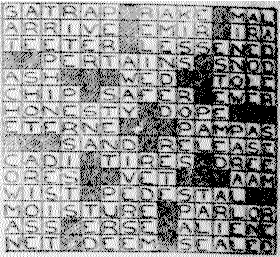 SATRAP RAKE MAL
ARRIVE EMIR
TEETER LESSENED
PERTAINS
ASH WED TOLE
CHIP SAFER EWER
HONESTY DOPE
ETERNE PAMPAS
SAND EASE
CADI TIRES
ORES VET AAR
WIST PEDESTAL
MOISTURE PARLOR
ASS ERSE ALIENE
NET SEALED